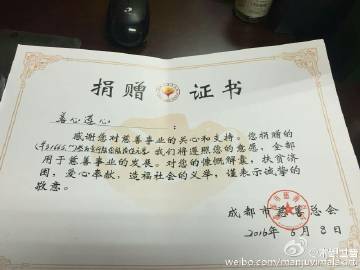 捐赠 证书
善心莲心：
感谢您对慈善事业的关心和支持。您捐赠的
我们将遵照您的意愿，全部
用于慈善事业的发展。对您的慷慨解囊，扶贫济
困，爱心奉献，造福社会的义举，谨表示诚挚的
敬意。
成都市慈善总会
2016年6月8日
weibo.com/manjuyimalakirti